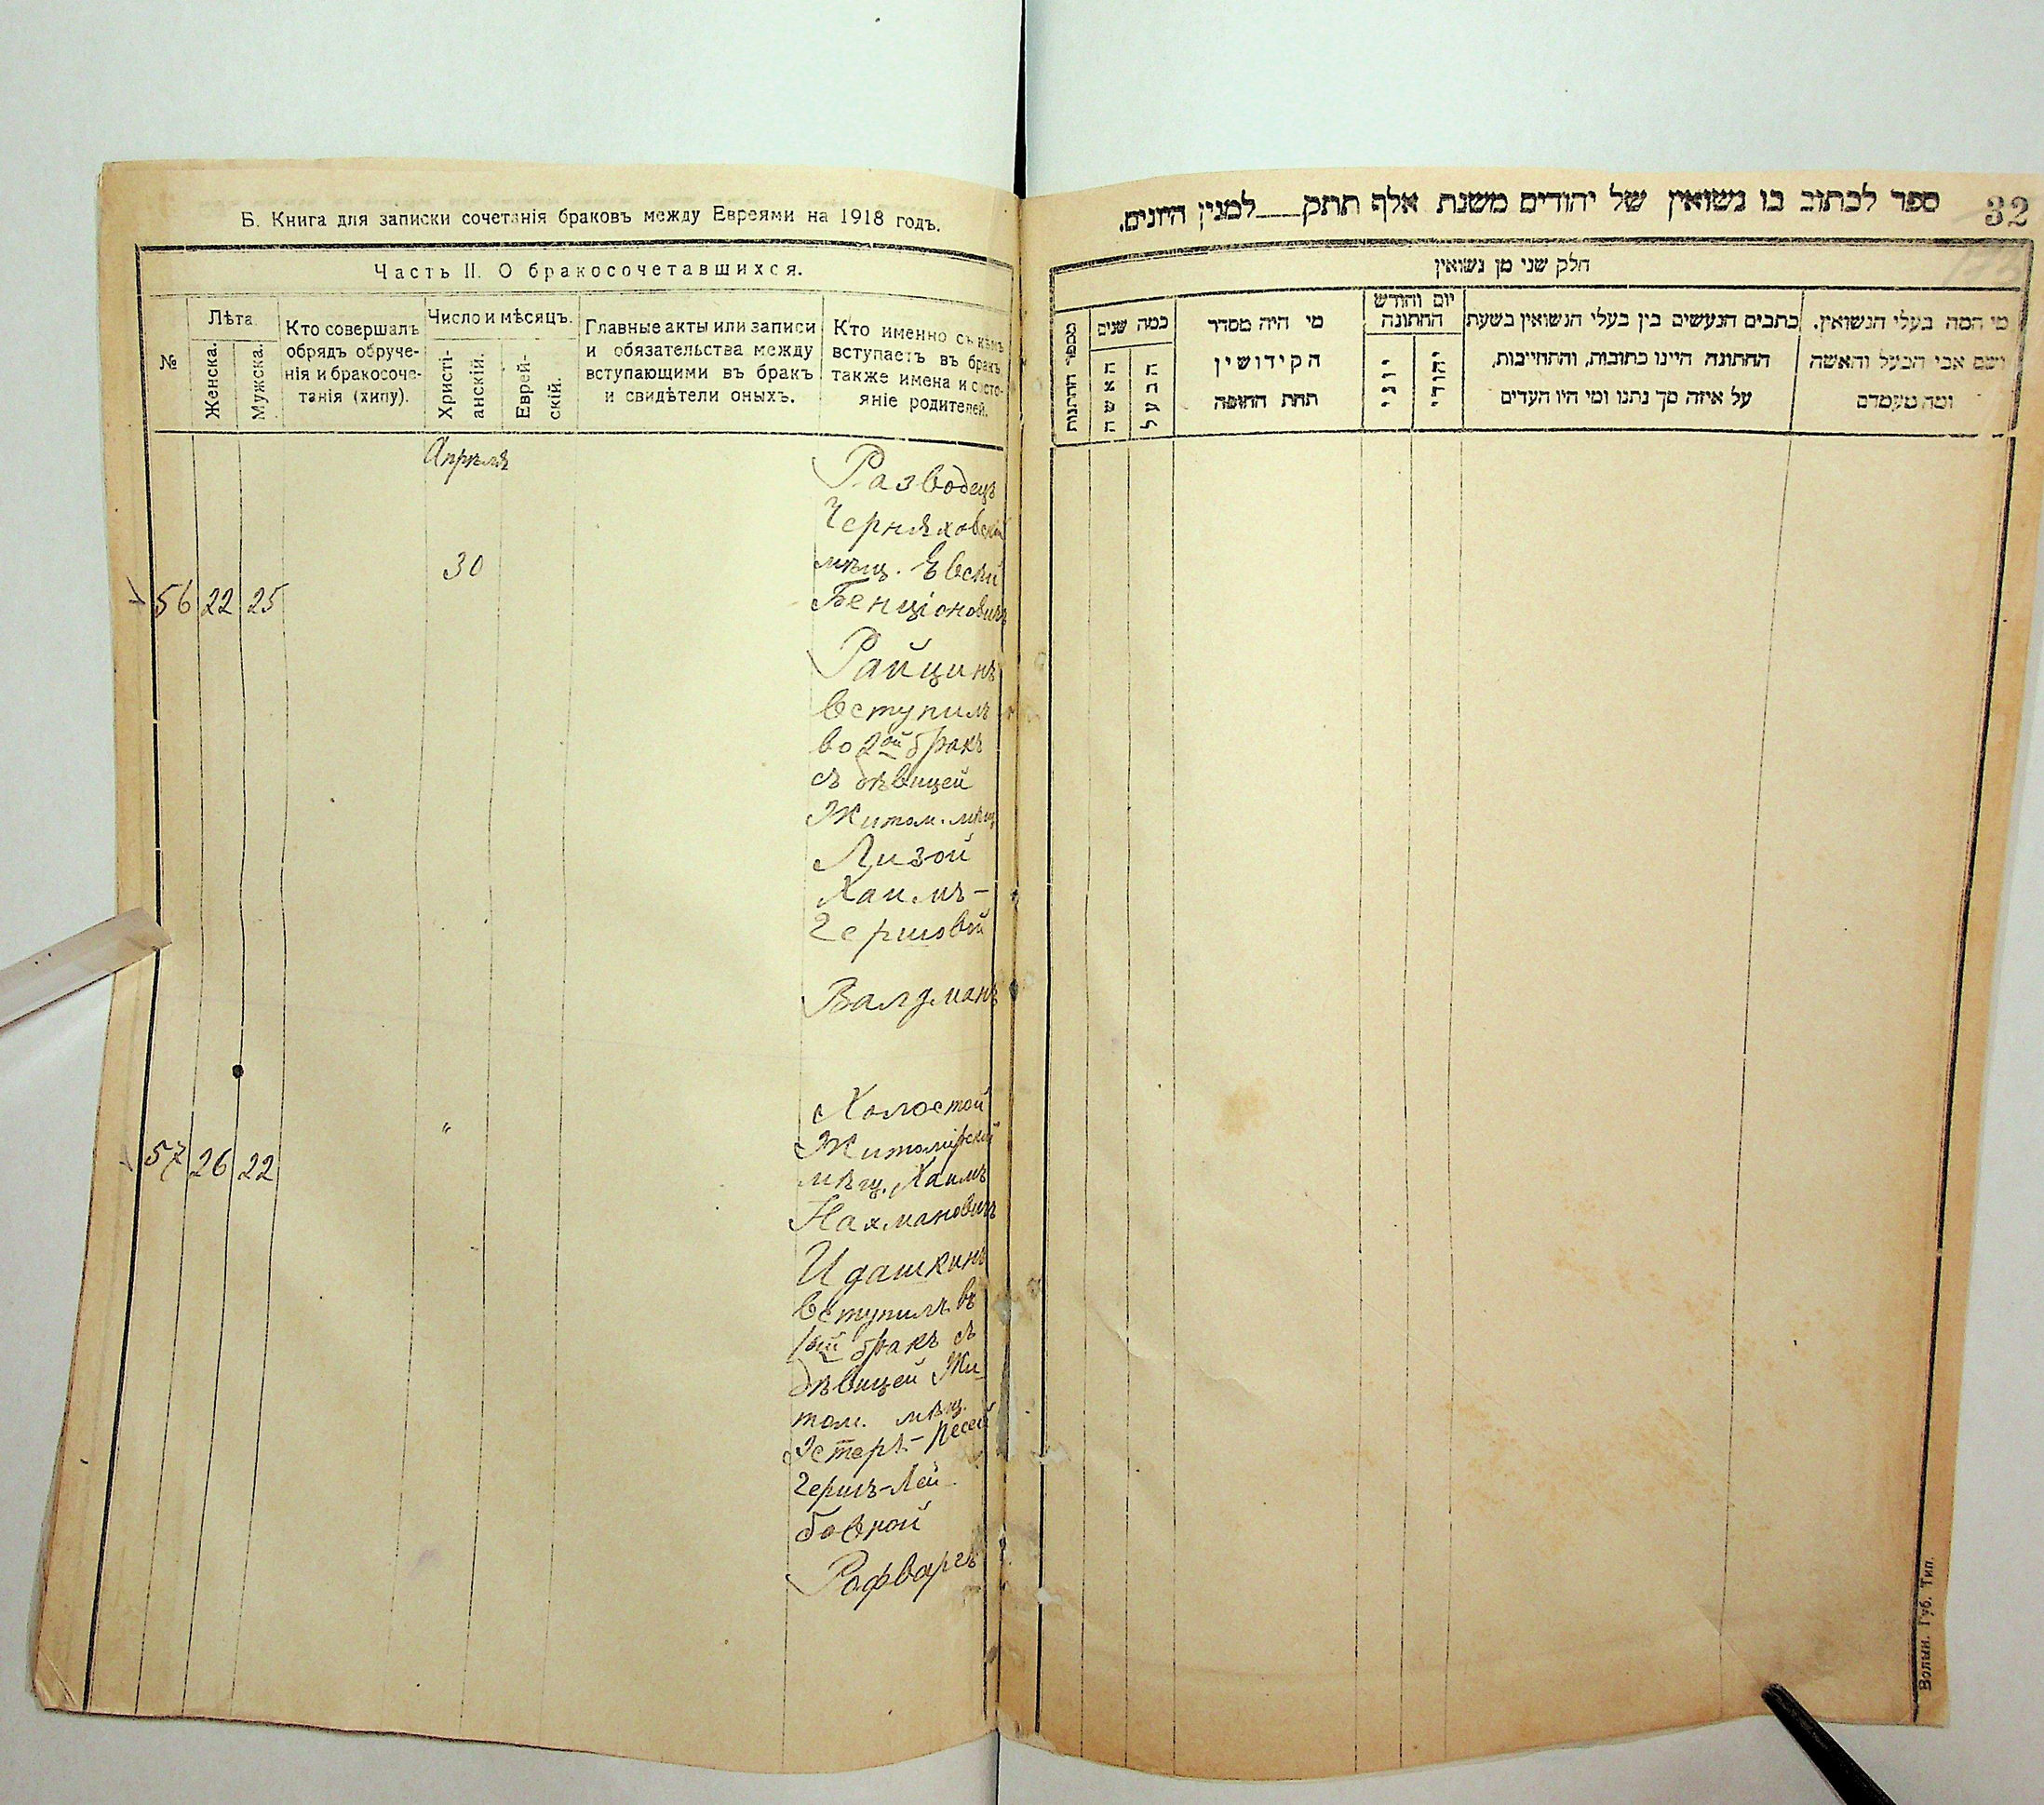 Б. Книга для записки сочетанія браковъ между Евреями на 1918 годъ.
Часть II. О бракосочетавшихся.
№
Лѣта
Женска.
Мужска.
Кто совершалъ
обрядъ обруче-
нія и бракосоче-
танія (хипу).
Число и мѣсяцъ.
Христі-
анскій.
Еврей-
скій.
Главные акты или записи
и обязательства между
вступающими въ бракъ
и свидѣтели оныхъ.
Кто именно съ кѣмъ
вступаетъ въ бракъ
также имена и состо-
яніе родителей.
Апрѣля
56 22 25
30
Разводецъ
Черняховскій
мѣщ. Евсѣй
Бенціоновичъ
Райцинъ
вступилъ
во 2ой бракъ
съ дѣвицей
Житом. мѣщ
Лизой
Хаимъ-
Гершовой
Валдманъ
57 26 22
"
Холостой
Житомірскій
мѣщ. Хаимъ
Нахмановичъ
Идашкинъ
вступилъ въ
1ый бракъ съ
дѣвицей Жи-
том. мѣщ.
Эстеръ-Песей
Гершъ-Лей
бовной
Рофваргъ
ספר לכתוב בו נשואין של יהודים משנת אלף תתק למנין היונים.
32
חלק שני מן נשואין
מספר החתונות
כמה שנים
האשה
הבעל
מי היה מסדר
הקידושין
תחת החופה
יום וחודש
החתונה
יוני
יהודי
כתבים הנעשים בין בעלי הנשואין בשעת
החתונה היינו כתובות, והתחייבות,
על איזה סך נתנו ומי היו העדים
מי המה בעלי הנשואין.
ושם אבי הבעל והאשה
ומה מעמדם
Волын. Губ. Тип.